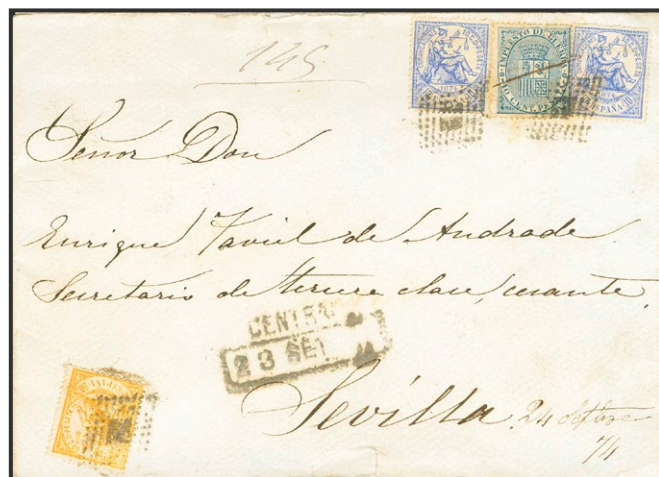 145
IMPUESTO DE GUERRA
Señor Don
Enrique Taviel de Andrade.
Secretario de tercera clase, cesante,
CENTRAL
23 SET
Sevilla 24 Setbre
74